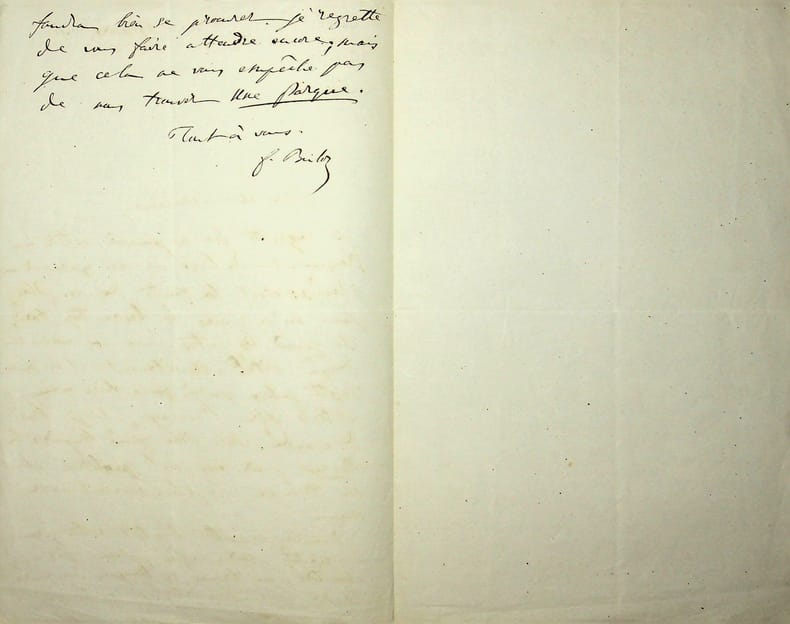 faudra bien se prouver. je regrette
de vous faire attendre encore, mais
que cela ne vous empêche pas
de nous trouver une Parque.
Tout à vous.
f. Buloz